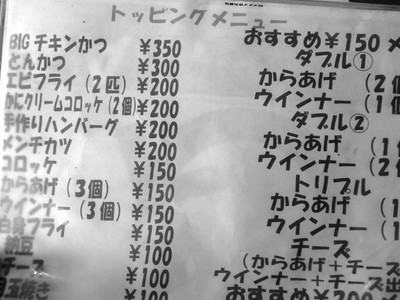 トッピングメニュー
BIG チキンかつ ¥350
とんかつ ¥300
エビフライ (2匹) ¥200
かにクリームコロッケ (2個) ¥200
手作りハンバーグ ¥200
メンチカツ ¥200
コロッケ ¥150
からあげ (3個) ¥150
ウインナー (3個) ¥150
白身フライ ¥150
納豆 ¥100
チーズ ¥100
目玉焼き ¥100
おすすめ ¥150
ダブル①
からあげ (2個
ウインナー (1個
ダブル②
からあげ (1
ウインナー (2
トリプル
からあげ (1
ウインナー (1
チーズ
(からあげ+チーズ
ウインナー+チーズ出
おすすめ ¥200